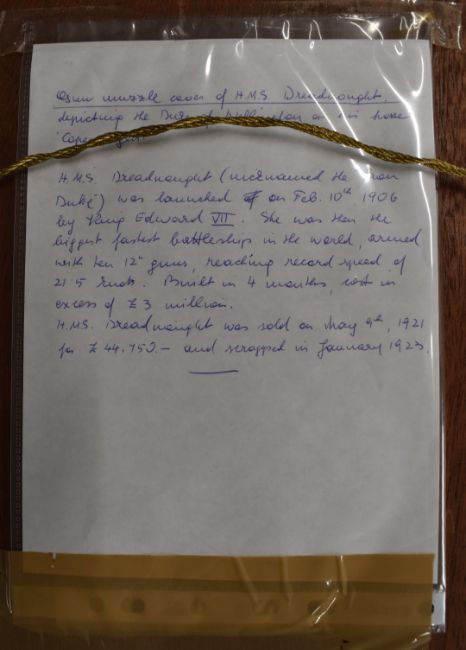 Gun muzzle cover of H.M.S. Dreadnought,
depicting the Duke of Wellington on his horse
"Copenhagen"
H.M.S. Dreadnought (nicknamed the "Iron
Duke") was launched on Feb. 10th 1906
by King Edward VII. She was then the
biggest fastest battleship in the world, armed
with ten 12" guns, reaching record speed of
21.5 knots. Built in 4 months, cost in
excess of £3 million.
H.M.S. Dreadnought was sold on May 9th, 1921
for £44.750.- and scrapped in January 1923.